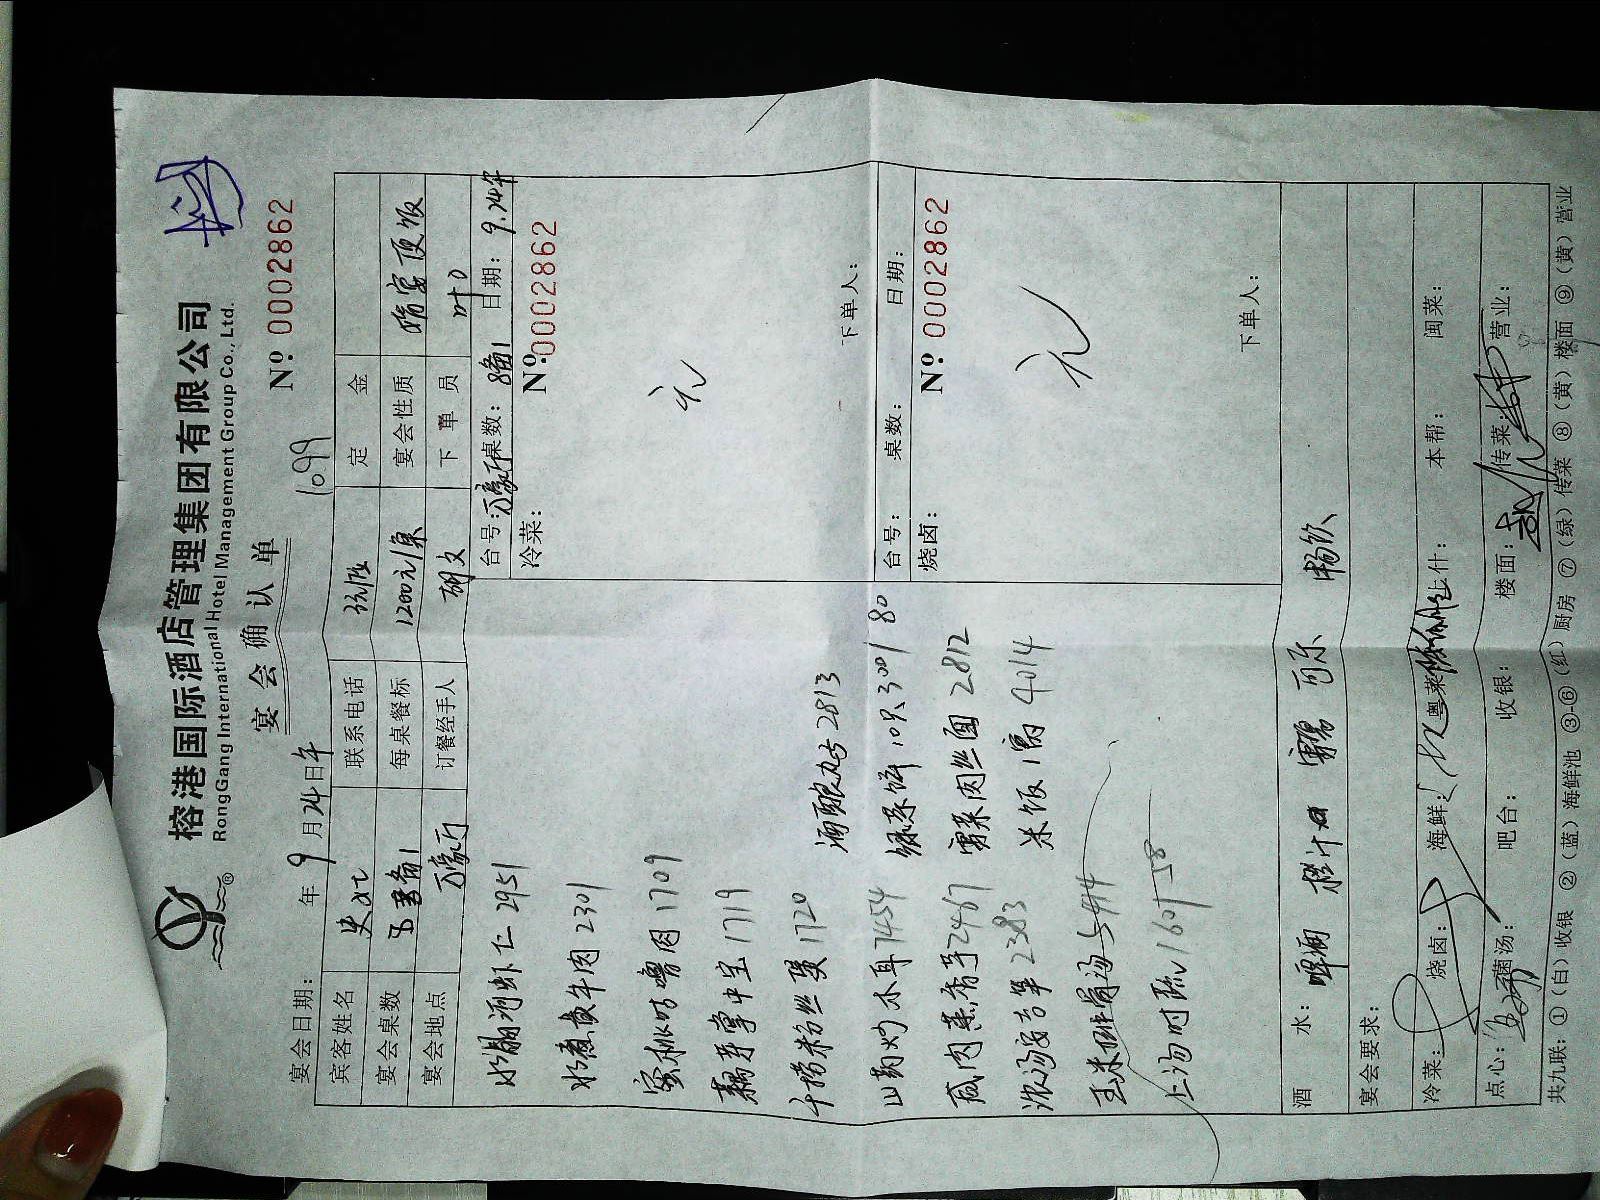 榕港国际酒店管理集团有限公司
RongGang International Hotel Management Group Co., Ltd.
宴会确认单
1099
Nº 0002862
宴会日期： 年 9 月 24 日 午
宾客姓名 联系电话 定金
宴会桌数 每桌餐标 1200元/桌 宴会性质 便饭
宴会地点 万豪厅 订餐经手人 下单员
台号：万豪厅 桌数： 日期：9.24午
冷菜： Nº:0002862
水晶河虾仁 2951
水煮嫩牛肉 2301
蜜桃咕噜肉 1709
1719
粉丝煲 1720
山药炒木耳 7454
咸肉蒸香芋 2467
浓汤 2383
玉米排骨汤 5414
上汤时蔬 1601 58
酒酿 2813
绿茶饼 10只 3001 80
雪菜肉丝面 2812
米饭 1窝 4014
元
下单人：
台号： 桌数： 日期：
烧卤： Nº: 0002862
元
下单人：
酒水： 啤酒 橙汁 雪碧 可乐 畅饮
宴会要求：
冷菜： 烧卤： 海鲜： 粤菜 上什： 本帮： 闽菜：
点心： 菌汤： 吧台： 收银： 楼面： 传菜： 营业：
共九联：①（白）收银 ②（蓝）海鲜池 ③-⑥（红）厨房 ⑦（绿）传菜 ⑧（黄）楼面 ⑨（黄）营业